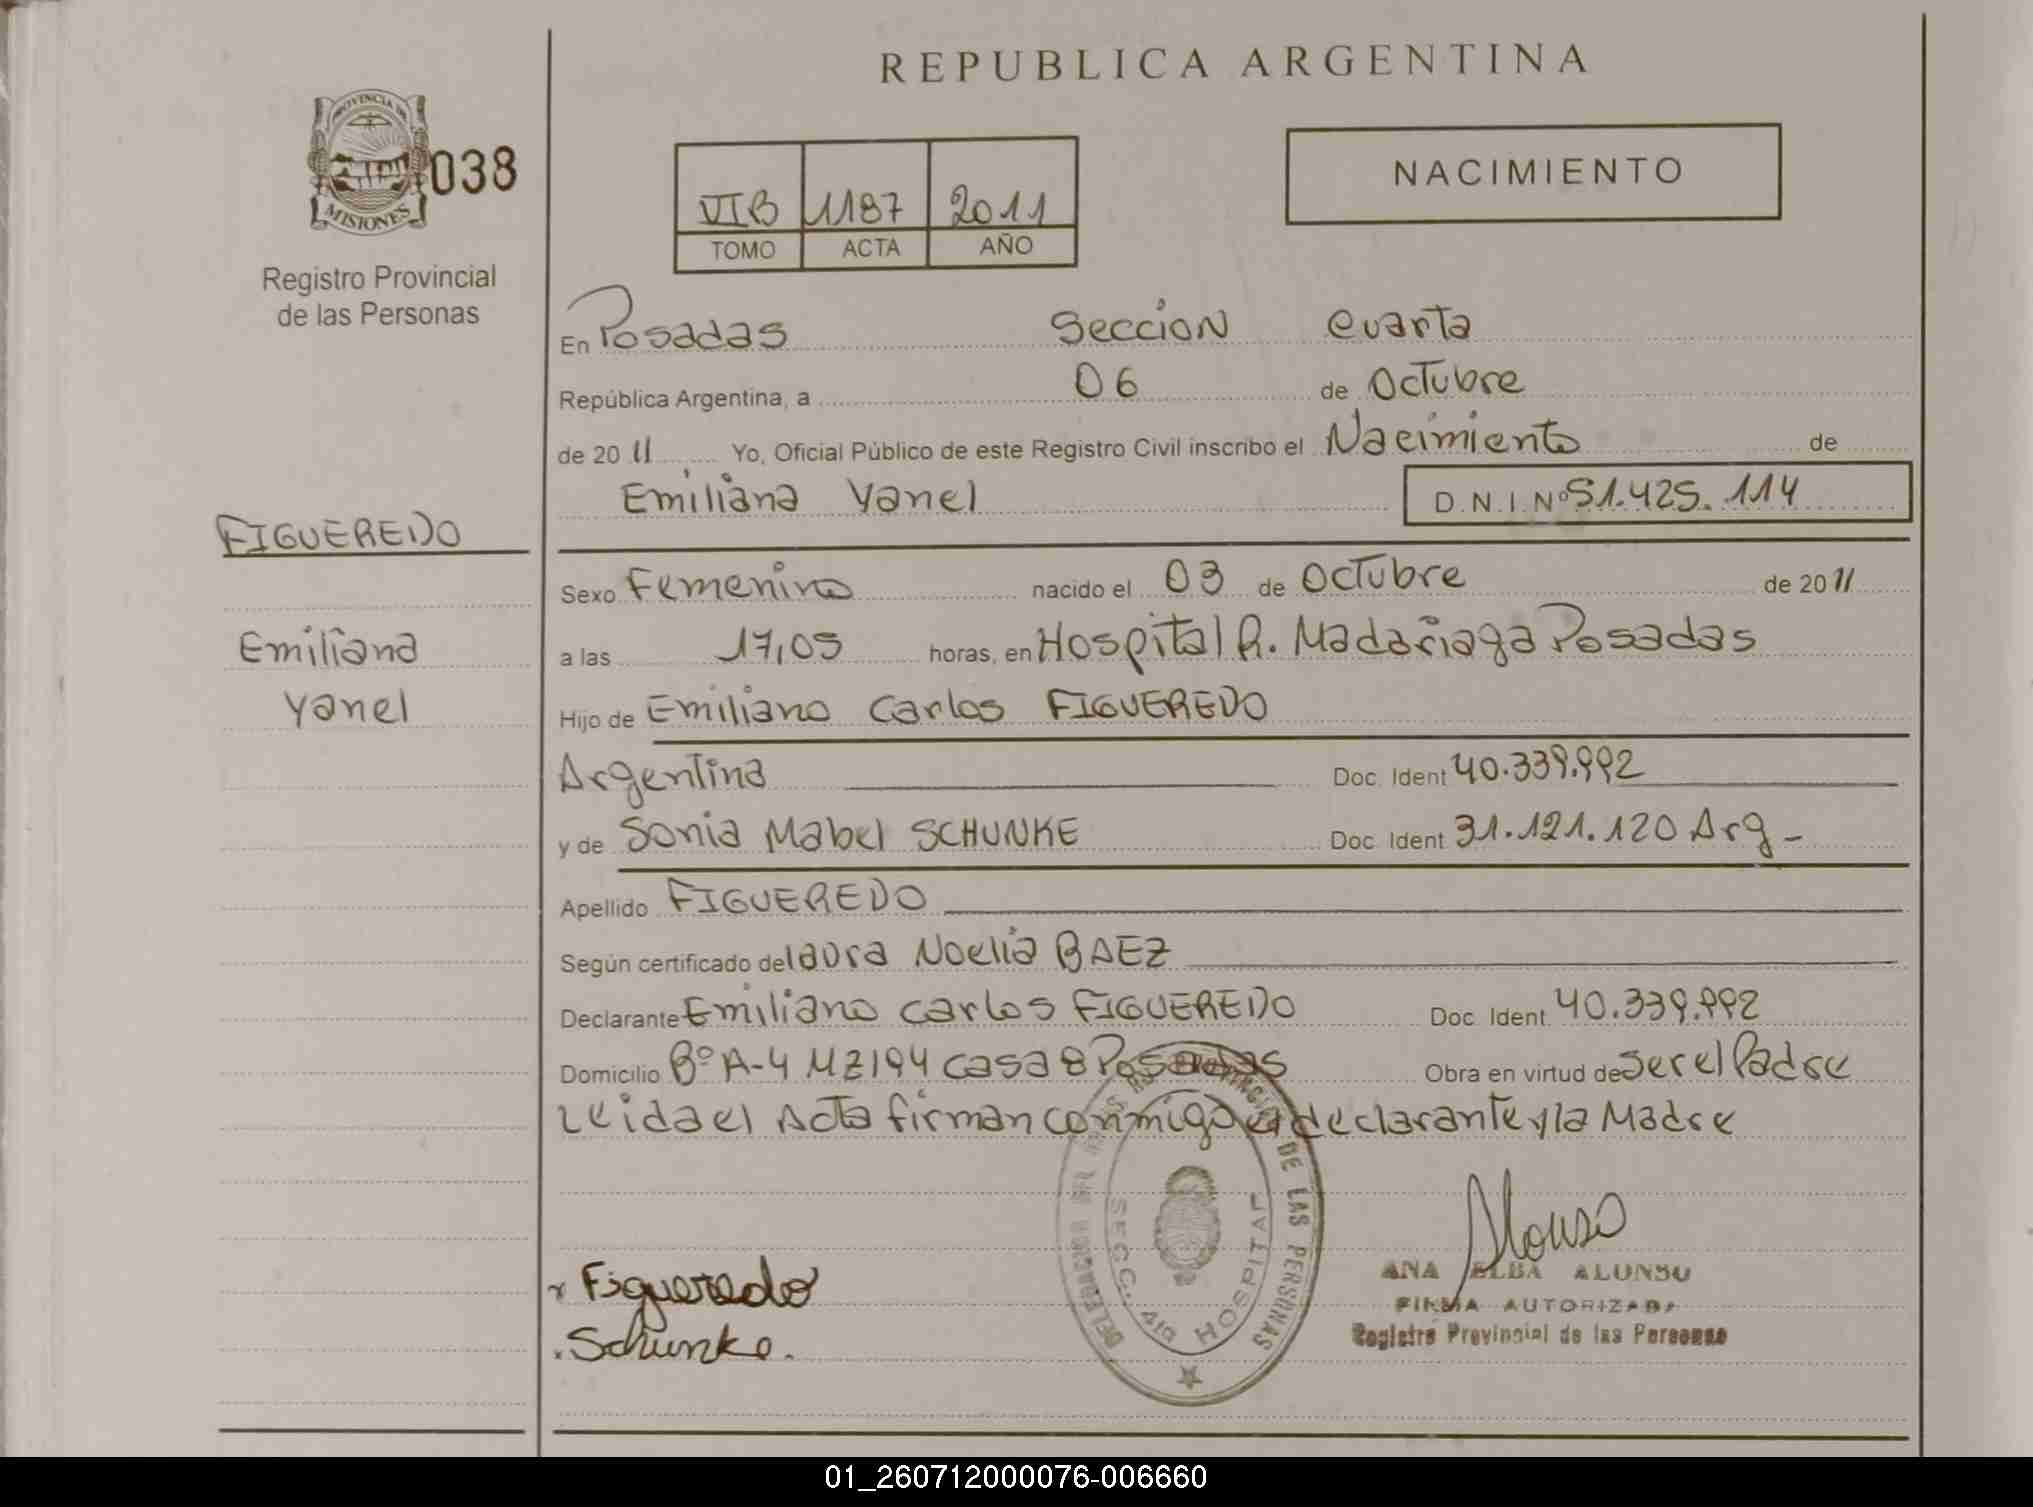 REPUBLICA ARGENTINA
PROVINCIA DE
MISIONES
038
Registro Provincial
de las Personas
NACIMIENTO
VIB 1187 2011
TOMO ACTA AÑO
En Posadas Seccion Cuarta
República Argentina, a 06 de Octubre
de 20 11 Yo, Oficial Público de este Registro Civil inscribo el Nacimiento de
Emiliana Yanel D.N.I. Nº 51.425.114
FIGUEREDO
Emiliana
Yanel
Sexo Femenino nacido el 03 de Octubre de 20 11
a las 17,05 horas, en Hospital R. Madariaga Posadas
Hijo de Emiliano Carlos FIGUEREDO
Argentina Doc. Ident 40.339.992
y de Sonia Mabel SCHUNKE Doc. Ident 31.121.120 Arg -
Apellido FIGUEREDO
Según certificado de laura Noelia BAEZ
Declarante Emiliano Carlos FIGUEREDO Doc. Ident. 40.339.992
Domicilio Bº A-4 MZ194 Casa 8 Posadas Obra en virtud de ser el Padre
Leida el Acta firman conmigo el declarante y la Madre
DE LAS PERSONAS
SECC. 4ta HOSPITAL
Alonso
ANA ELBA ALONSO
FIRMA AUTORIZADA
Registro Provincial de las Personas
x Figueredo
x Schunke.
01_260712000076-006660